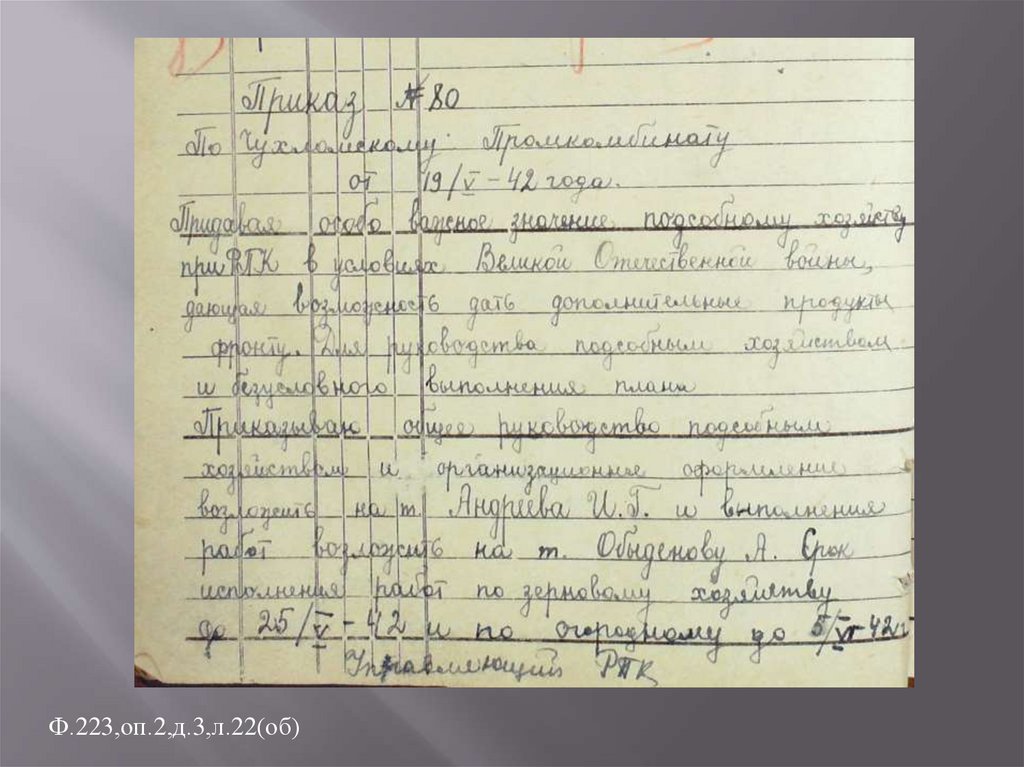 Приказ № 80
По Чухломскому Промкомбинату
от 19/V – 42 года.
Придавая особо важное значение подсобному хозяйству
при РПК в условиях Великой Отечественной войны,
дающая возможность дать дополнительные продукты
фронту. Для руководства подсобным хозяйством
и безусловного выполнения плана
Приказываю общее руководство подсобным
хозяйством и организационное оформление
возложить на т. Андреева И.Г. и выполнения
работ возложить на т. Обыденову А. Срок
исполнения работ по зерновому хозяйству
до 25/V – 42 и по огородному до 5/VI-42 г
Управляющий РПК
Ф.223,оп.2,д.3,л.22(об)